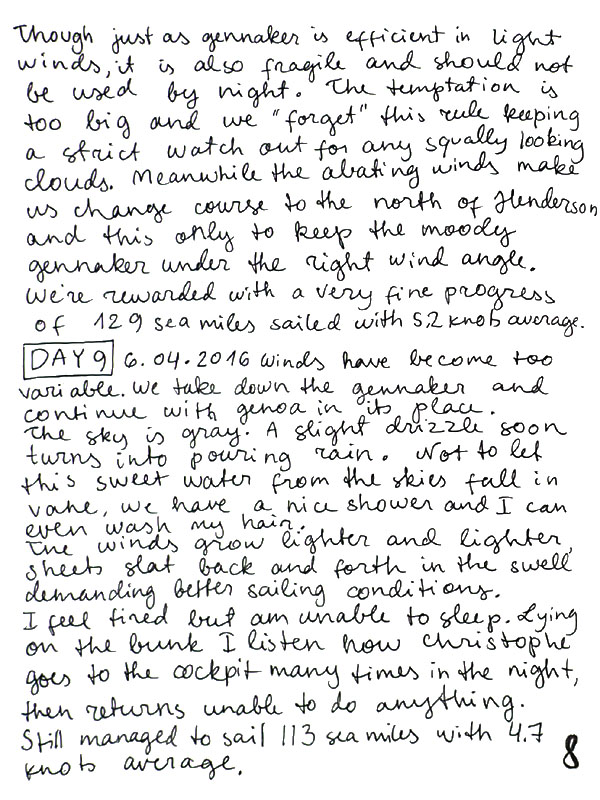 Though just as gennaker is efficient in light
winds, it is also fragile and should not
be used by night. The temptation is
too big and we "forget" this rule keeping
a strict watch out for any squally looking
clouds. Meanwhile the abating winds make
us change course to the north of Henderson
and this only to keep the moody
gennaker under the right wind angle.
We're rewarded with a very fine progress
of 129 sea miles sailed with 5.2 knots average.
DAY 9 6.04.2016 Winds have become too
variable. We take down the gennaker and
continue with genoa in its place.
The sky is gray. A slight drizzle soon
turns into pouring rain. Not to let
this sweet water from the skies fall in
vane, we have a nice shower and I can
even wash my hair.
The winds grow lighter and lighter,
sheets slat back and forth in the swell
demanding better sailing conditions.
I feel tired but am unable to sleep. Lying
on the bunk I listen how Christophe
goes to the cockpit many times in the night,
then returns unable to do anything.
Still managed to sail 113 sea miles with 4.7
knots average.
8